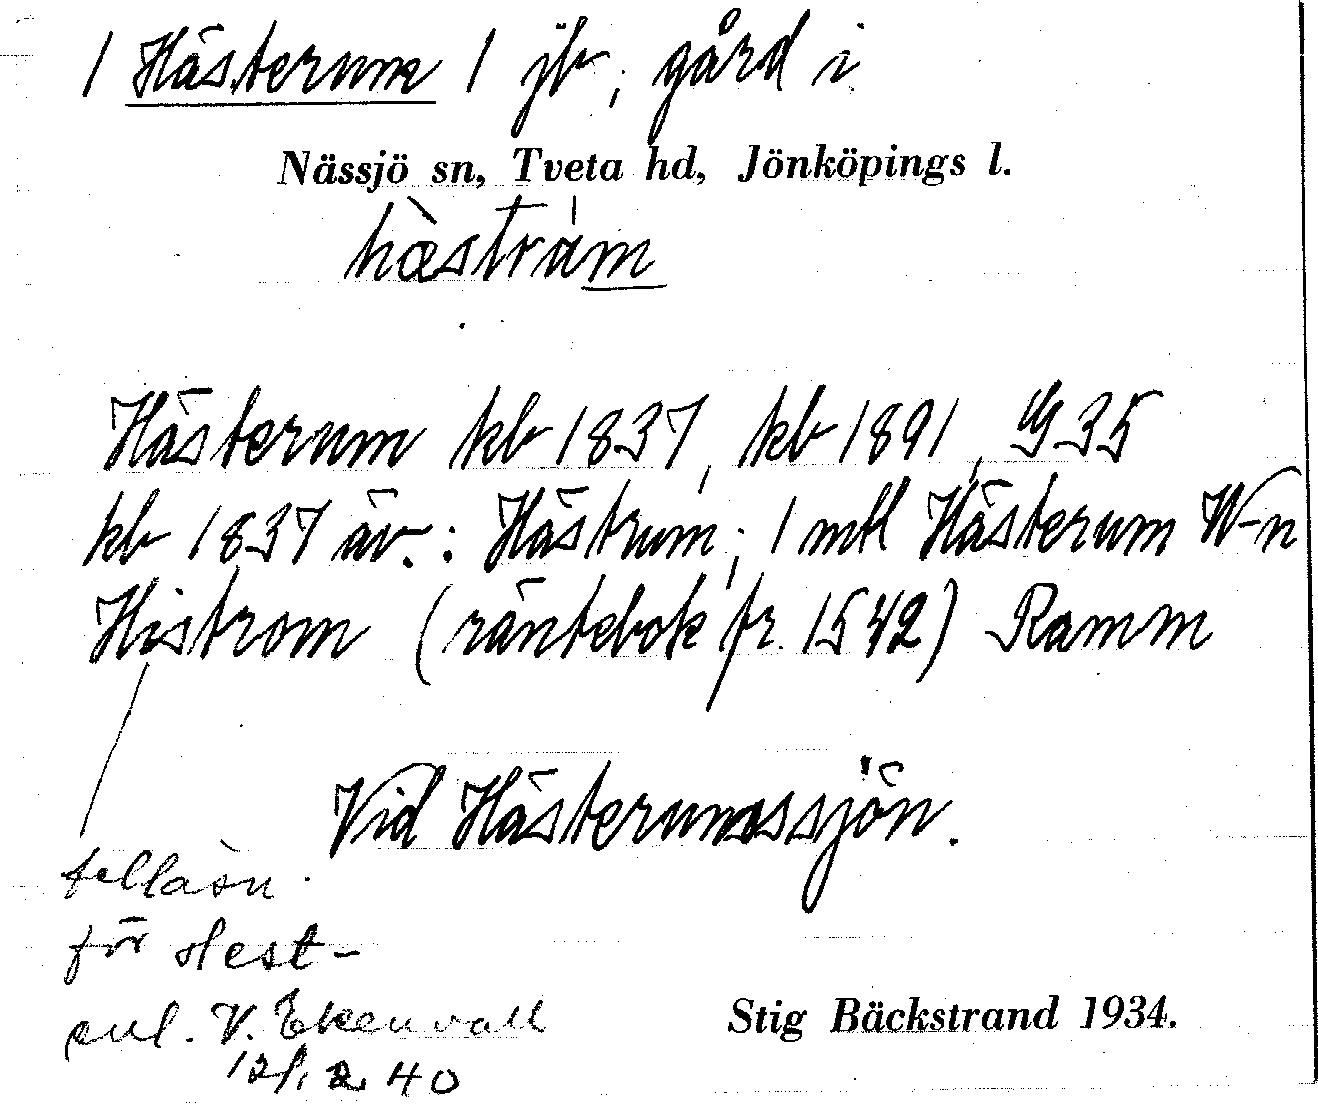 1 Hästerum 1 jb, gård i
Nässjö sn, Tveta hd, Jönköpings l.
hæ̀stram
Hästerum kb 1837, kb 1891, 35
kb 1837 äv.: Hästrum; 1 mtl Hästerum W-n
Histrom (räntebok fr. 1542) Ramm
Vid Hästerumssjön.
felläsn.
för Hest-
enl. V. Ekenvall
12/12 40
Stig Bäckstrand 1934.